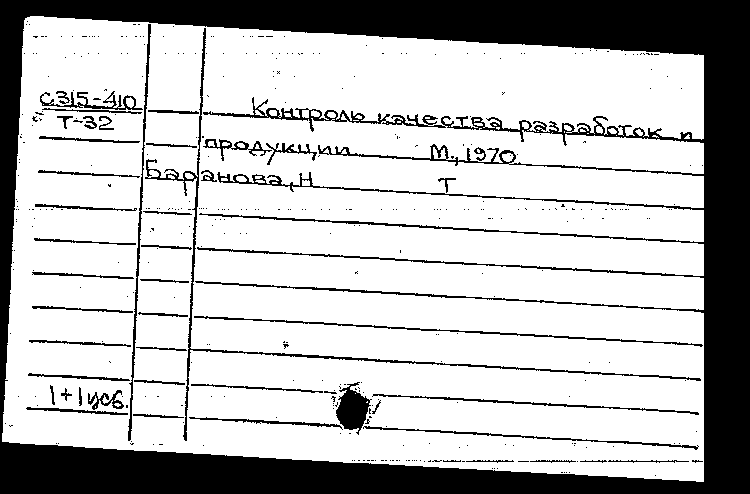 С315-410
Т-32
Контроль качества разработок и
продукции М., 1970
Баранова, Н Т
1+1 усб.